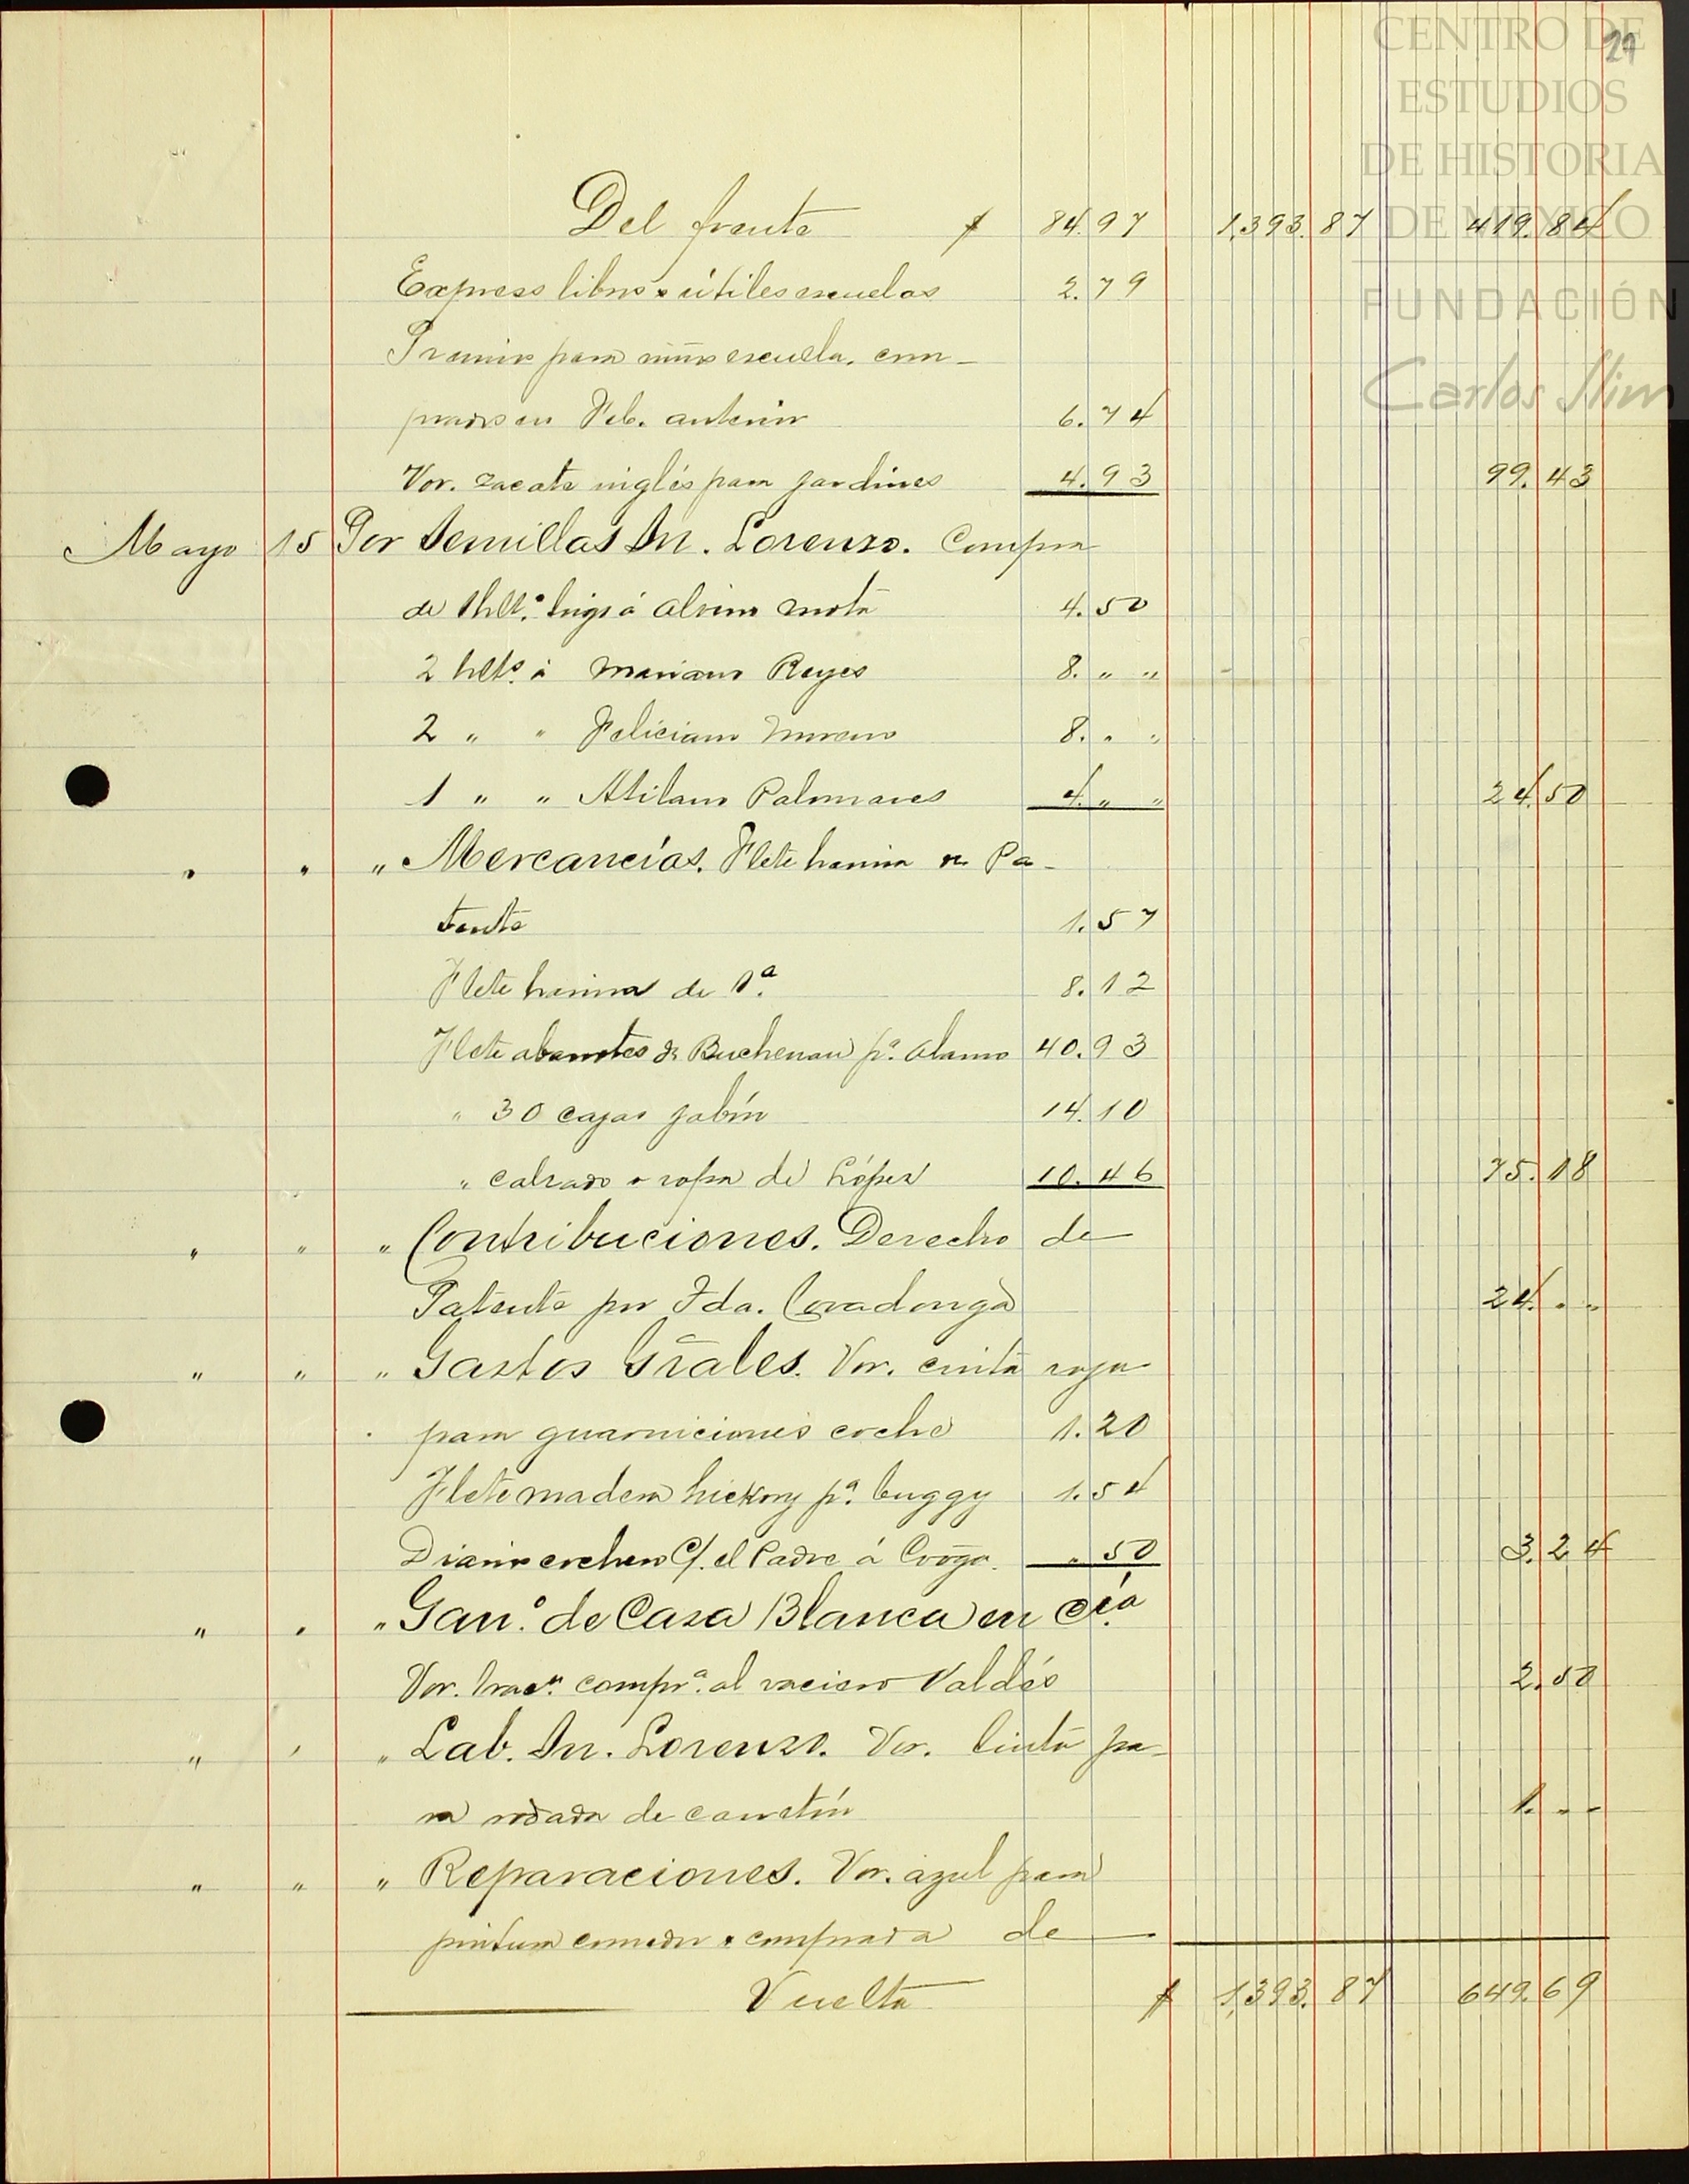 CENTRO DE
ESTUDIOS
DE HISTORIA
DE MÉXICO
FUNDACIÓN
Carlos Slim
29
Del frente $ 84.97 1,393.87 419.84
Express libros y útiles escuelas 2.79
Premios para niños escuela, com-
prados en Feb. anterior 6.74
Vor. zacate inglés para jardines 4.93 99.43
Mayo 15 Por Semillas Sn. Lorenzo. Compra
de 1 hlto. trigo á Albino Mota 4.50
2 hlts. á Mariano Reyes 8. " "
2 " " Feliciano Moreno 8. " "
1 " " Atilano Palomares 4. " " 24.50
" " " Mercancías. Flete harina de Pa-
tente 1.57
Flete harina de 1ª. 8.12
Flete abarrotes de Buchenau pª. Alamo 40.93
" 30 cajas jabón 14.10
" calzado y ropa de López 10.46 75.18
" " " Contribuciones. Derecho de
Patente por Fda. Covadonga 24. " "
" " " Gastos Grales. Vor. cinta roja
para guarniciones coche 1.20
Flete madera hickory pª. buggy 1.54
Diario cochero C/. el Padre á Covga. " 50 3.24
" " " Gano. de Casa Blanca en Cía.
Vor. compra. al vaciero Valdés 2.50
" " " Lab. Sn. Lorenzo. Vor. cinta pa-
ra rodada de carretón 1. " "
" " " Reparaciones. Vor. azul para
pintura comedor y comprada de
Vuelta $ 1,393.87 649.69